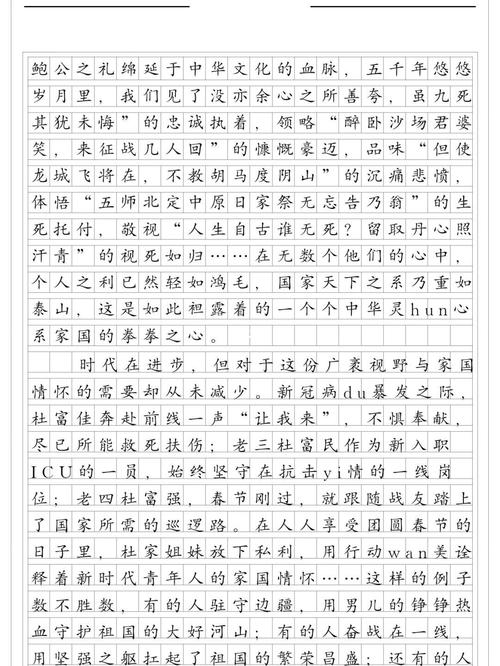 鲍公之礼绵延于中华文化的血脉，五千年悠悠
岁月里，我们见了没亦余心之所善夸，虽九死
其犹未悔”的忠诚执着，领略“醉卧沙场君婆
笑，来征战几人回”的慷慨豪迈，品味“但使
龙城飞将在，不教胡马度阴山”的沉痛悲愤，
体悟“五师北定中原日家祭无忘告乃翁”的生
死托付，敬视“人生自古谁无死？留取丹心照
汗青”的视死如归……在无数个他们的心中，
个人之利已然轻如鸿毛，国家天下之系乃重如
泰山，这是如此袒露着的一个个中华灵hun心
系家国的拳拳之心。
时代在进步，但对于这份广袤视野与家国
情怀的需要却从未减少。新冠病du暴发之际，
杜富佳奔赴前线一声“让我来”，不惧奉献，
尽已所能救死扶伤；老三杜富民作为新入职
ICU的一员，始终坚守在抗击yi情的一线岗
位；老四杜富强，春节刚过，就跟随战友踏上
了国家所需的巡逻路。在人人享受团圆春节的
日子里，杜家姐妹放下私利，用行动wan美诠
释着新时代青年人的家国情怀……这样的例子
数不胜数，有的人驻守边疆，用男儿的铮铮热
血守护祖国的大好河山；有的人奋战在一线，
用坚强之躯扛起了祖国的繁荣昌盛；还有的人